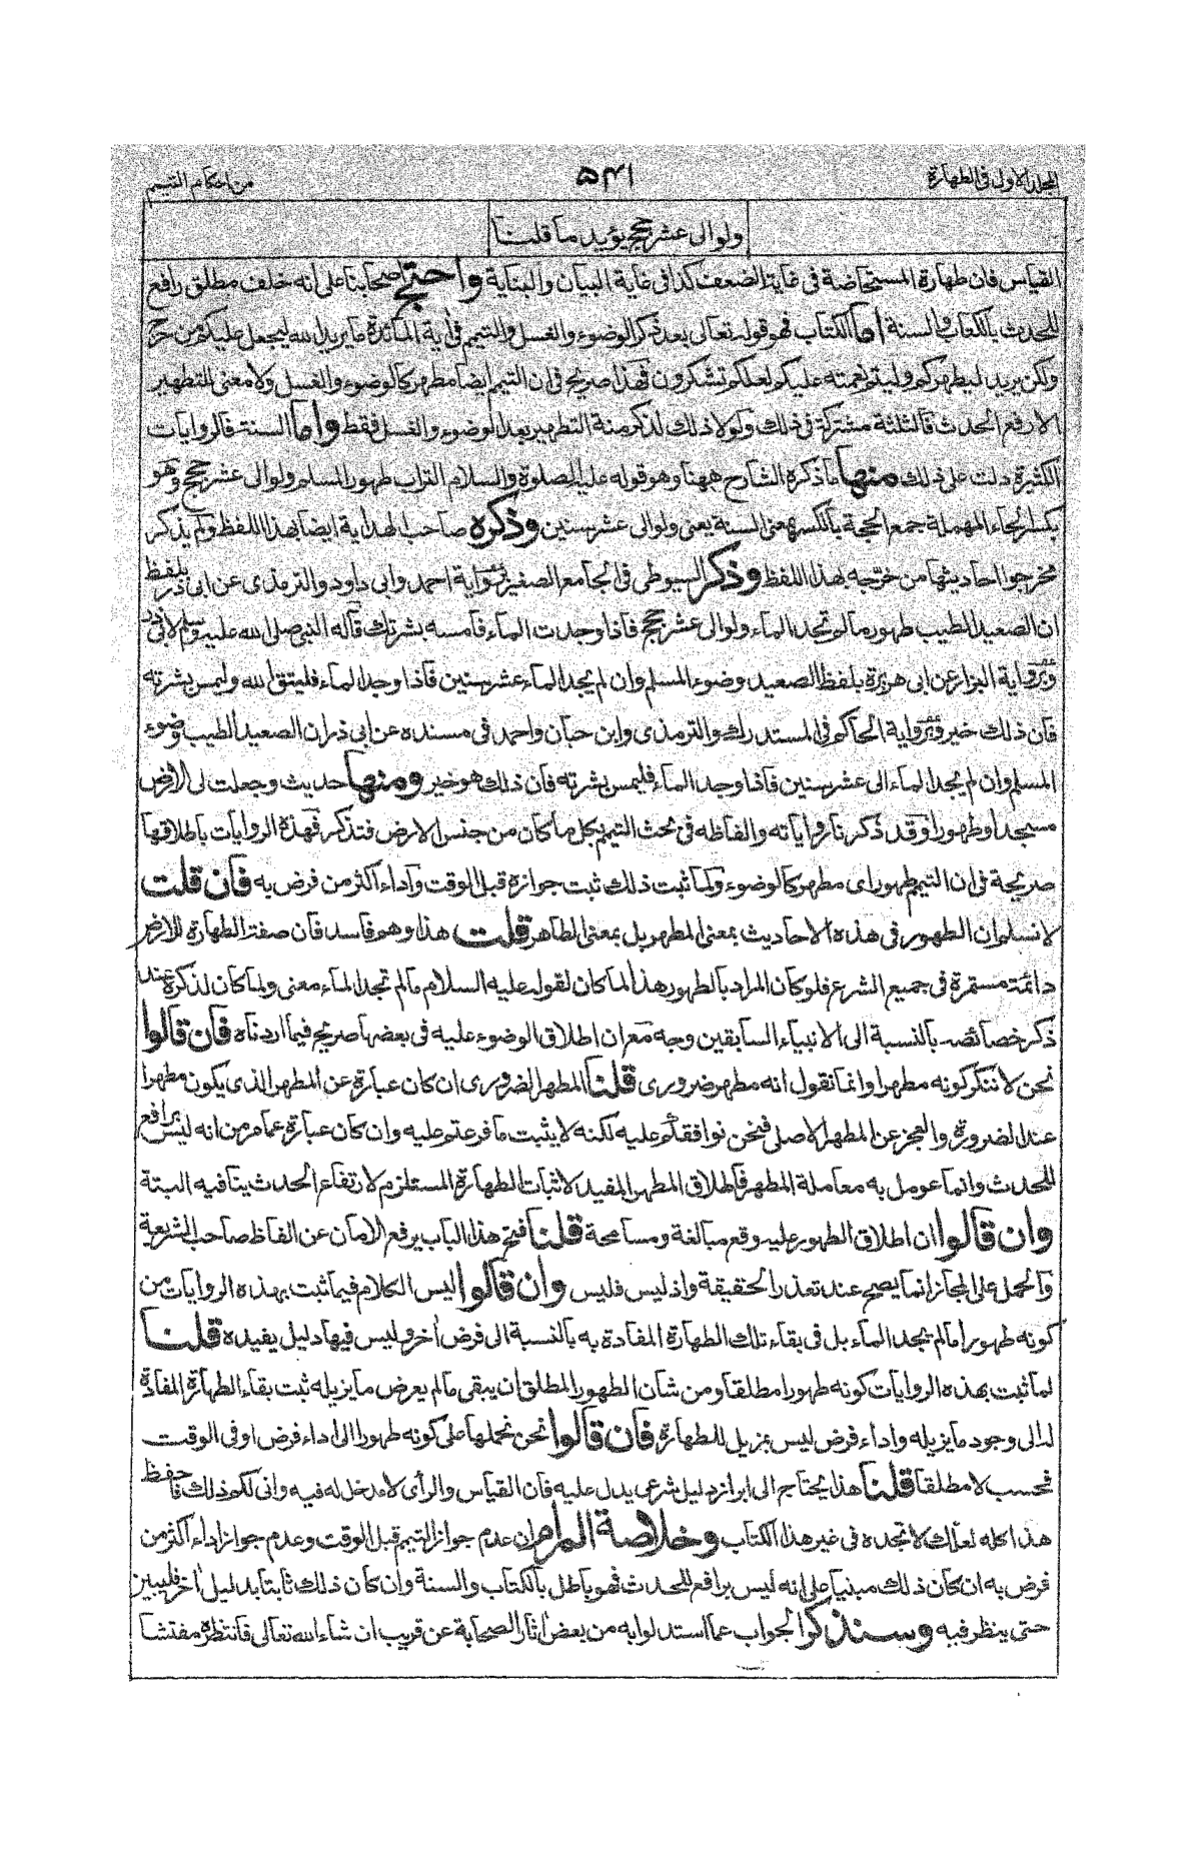 المجلد الاول فى الطهارة
۵۴۱
من احكام التيمم
ولو الى عشر حجج يؤيد ما قلنا
القياس فان طهارة المستحاضة فى غاية الضعف كذا فى غاية البيان والبناية واحتج اصحابنا على انه خلف مطلق رافع
للحدث بالكتاب والسنة اما الكتاب فهو قوله تعالى بعد ذكر الوضوء والغسل والتيمم فى أية المائدة ما يريد الله ليجعل عليكم من حرج
ولكن يريد ليطهركم وليتم نعمته عليكم لعلكم تشكرون فهذا صريح فى ان التيمم ايضا مطهر كالوضوء والغسل ولا معنى للتطهير
الا رفع الحدث فالثلثة مشتركة فى ذلك ولولا ذلك لذكر منة التطهير بعد الوضوء والغسل فقط واما السنة فالروايات
الكثيرة دلت على ذلك منها ما ذكره الشارح ههنا وهو قوله عليه الصلوة والسلام التراب طهور المسلم ولو الى عشر حجج وهو
بكسر الحاء المهملة جمع الحجة بالكسر بمعنى السنة يعنى ولو الى عشر سنين وذكره صاحب الهداية ايضا بهذا اللفظ ولم يذكر
مخرجوا احاديثها من خرّجه بهذا اللفظ وذكر السيوطى فى الجامع الصغير برواية احمد وابى داود والترمذى عن ابى ذر بلفظ
ان الصعيد الطيب طهور ما لم تجد الماء ولو الى عشر حجج فاذا وجدت الماء فامسه بشرتك قاله النبى صلى الله عليه وسلم لابى ذر
وبرواية البزار عن ابى هريرة بلفظ الصعيد وضوء المسلم وان لم يجد الماء عشر سنين فاذا وجد الماء فليتق الله وليمس بشرته
فان ذلك خير وبرواية الحاكم فى المستدرك والترمذى وابن حبان واحمد فى مسنده عن ابى ذر ان الصعيد الطيب وضوء
المسلم وان لم يجد الماء الى عشر سنين فاذا وجد الماء فليمس بشرته فان ذلك هو خير ومنها حديث وجعلت لى الارض
مسجدا وطهورا وقد ذكرنا رواياته والفاظه فى بحث التيمم بكل ما كان من جنس الارض فتذكر فهذه الروايات باطلاقها
صريحة فى ان التيمم طهور اى مطهر كالوضوء ولما ثبت ذلك ثبت جوازه قبل الوقت وأداء اكثر من فرض به فان قلت
لا نسلم ان الطهور فى هذه الاحاديث بمعنى المطهر بل بمعنى الطاهر قلت هذا وهم فاسد فان صفة الطهارة للارض
دائمة مستمرة فى جميع الشرع فلو كان المراد بالطهور هذا لما كان لقوله عليه السلام ما لم تجد الماء معنى ولما كان لذكره عند
ذكر خصائصه بالنسبة الى الانبياء السابقين وجه مع ان اطلاق الوضوء عليه فى بعضها صريح فيما اردناه فان قالوا
نحن لا ننكر كونه مطهرا وانما نقول انه مطهر ضرورى قلنا المطهر الضرورى ان كان عبارة عن المطهر الذى يكون مطهرا
عند الضرورة والعجز عن المطهر الاصلى فنحن نوافقكم عليه لكنه لا يثبت ما فرعتم عليه وان كان عبارة عما مر من انه ليس برافع
للحدث وانما عومل به معاملة المطهر فاطلاق المطهر المفيد لاثبات الطهارة المستلزم لارتفاع الحدث ينافيه البتة
وان قالوا ان اطلاق الطهور عليه وقع مبالغة ومسامحة قلنا فتح هذا الباب يرفع الامان عن الفاظ صاحب الشريعة
والحمل على المجاز انما يصح عند تعذر الحقيقة واذ ليس فليس وان قالوا ليس الكلام فيما ثبت بهذه الروايات من
كونه طهورا ما لم يجد الماء بل فى بقاء تلك الطهارة المفادة به بالنسبة الى فرض أخر وليس فيها دليل يفيده قلنا
لما ثبت بهذه الروايات كونه طهورا مطلقا ومن شان الطهور المطلق ان يبقى ما لم يعرض ما يزيله ثبت بقاء الطهارة المفادة
له الى وجود ما يزيله واداء فرض ليس بمزيل للطهارة فان قالوا نحن نحملها على كونه طهورا الى اداء فرض او فى الوقت
فحسب لا مطلقا قلنا هذا يحتاج الى ابراز دليل شرعى يدل عليه فان القياس والرأى لا مدخل له فيه وانى لكم ذلك فاحفظ
هذا كله لعلك لا تجده فى غير هذا الكتاب وخلاصة المرام ان عدم جواز التيمم قبل الوقت وعدم جواز اداء اكثر من
فرض به ان كان ذلك مبنيا على انه ليس برافع للحدث فهو باطل بالكتاب والسنة وان كان ذلك ثابتا بدليل أخر فليبين
حتى ينظر فيه وسنذكر الجواب عما استدلوا به من بعض أثار الصحابة عن قريب ان شاء الله تعالى فانتظره مفتشا